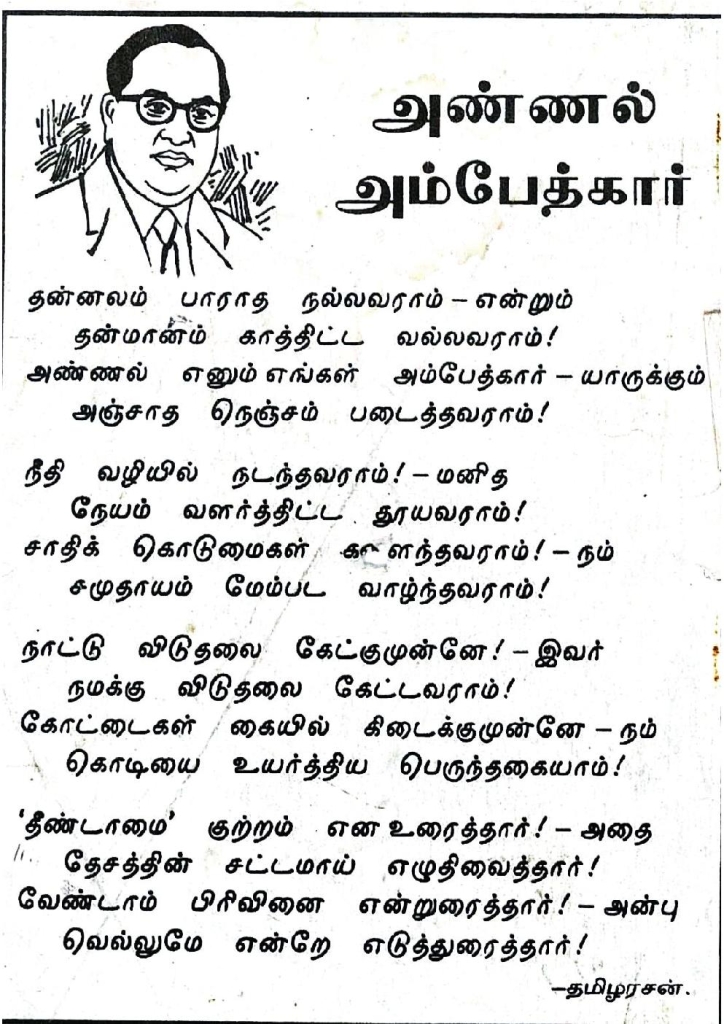 அண்ணல்
அம்பேத்கார்
தன்னலம் பாராத நல்லவராம் – என்றும்
தன்மானம் காத்திட்ட வல்லவராம்!
அண்ணல் எனும் எங்கள் அம்பேத்கார் – யாருக்கும்
அஞ்சாத நெஞ்சம் படைத்தவராம்!
நீதி வழியில் நடந்தவராம்! – மனித
நேயம் வளர்த்திட்ட தூயவராம்!
சாதிக் கொடுமைகள் – நம்
சமுதாயம் மேம்பட வாழ்ந்தவராம்!
நாட்டு விடுதலை கேட்குமுன்னே! – இவர்
நமக்கு விடுதலை கேட்டவராம்!
கோட்டைகள் கையில் கிடைக்குமுன்னே – நம்
கொடியை உயர்த்திய பெருந்தகையாம்!
‘தீண்டாமை’ குற்றம் என உரைத்தார்! – அதை
தேசத்தின் சட்டமாய் எழுதிவைத்தார்!
வேண்டாம் பிரிவினை என்றுரைத்தார்! – அன்பு
வெல்லுமே என்றே எடுத்துரைத்தார்!
–தமிழரசன்.